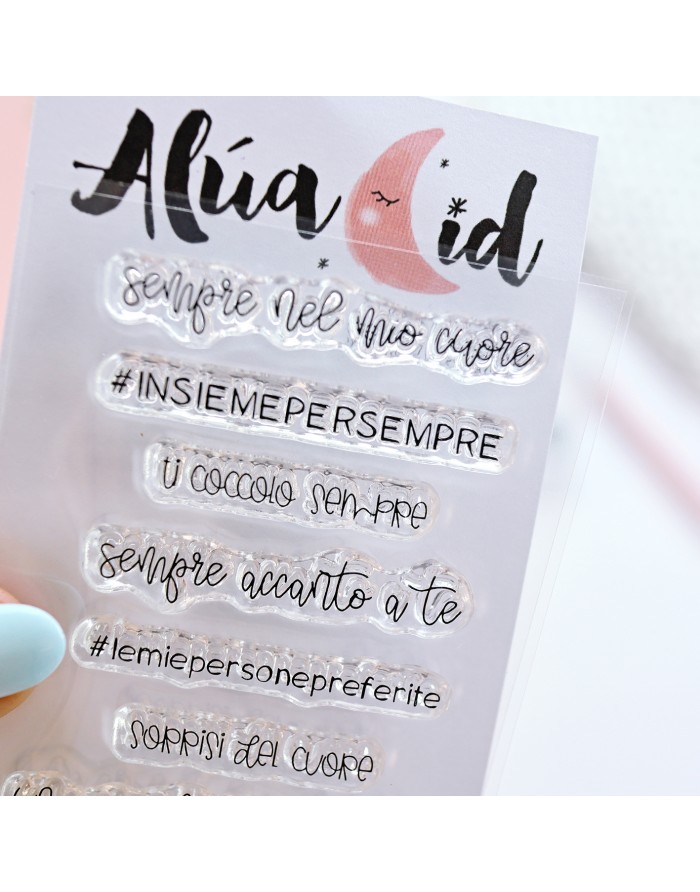 Alúa Cid
sempre nel mio cuore
#INSIEMEPERSEMPRE
ti coccolo sempre
sempre accanto a te
#lemiepersonepreferite
SORRISI del CUORE